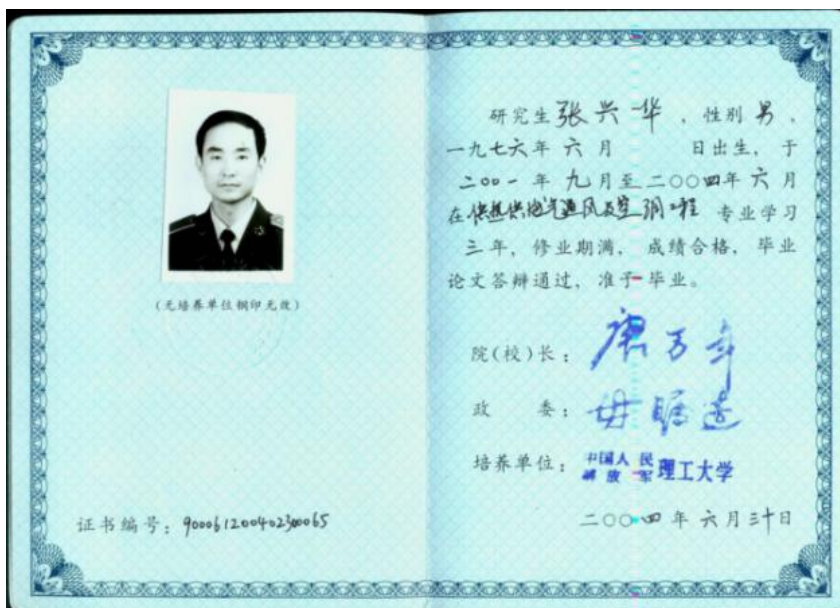 (无培养单位钢印无效)
证书编号：900061200402300065
研究生张兴华，性别男，
一九七六年六月　　日出生，于
二00一年九月至二〇〇四年六月
在供热供燃气通风及空调工程 专业学习
三年，修业期满，成绩合格，毕业
论文答辩通过，准予毕业。
院(校)长：
政　委：
培养单位：中国人民解放军理工大学
二〇〇四年六月三十日